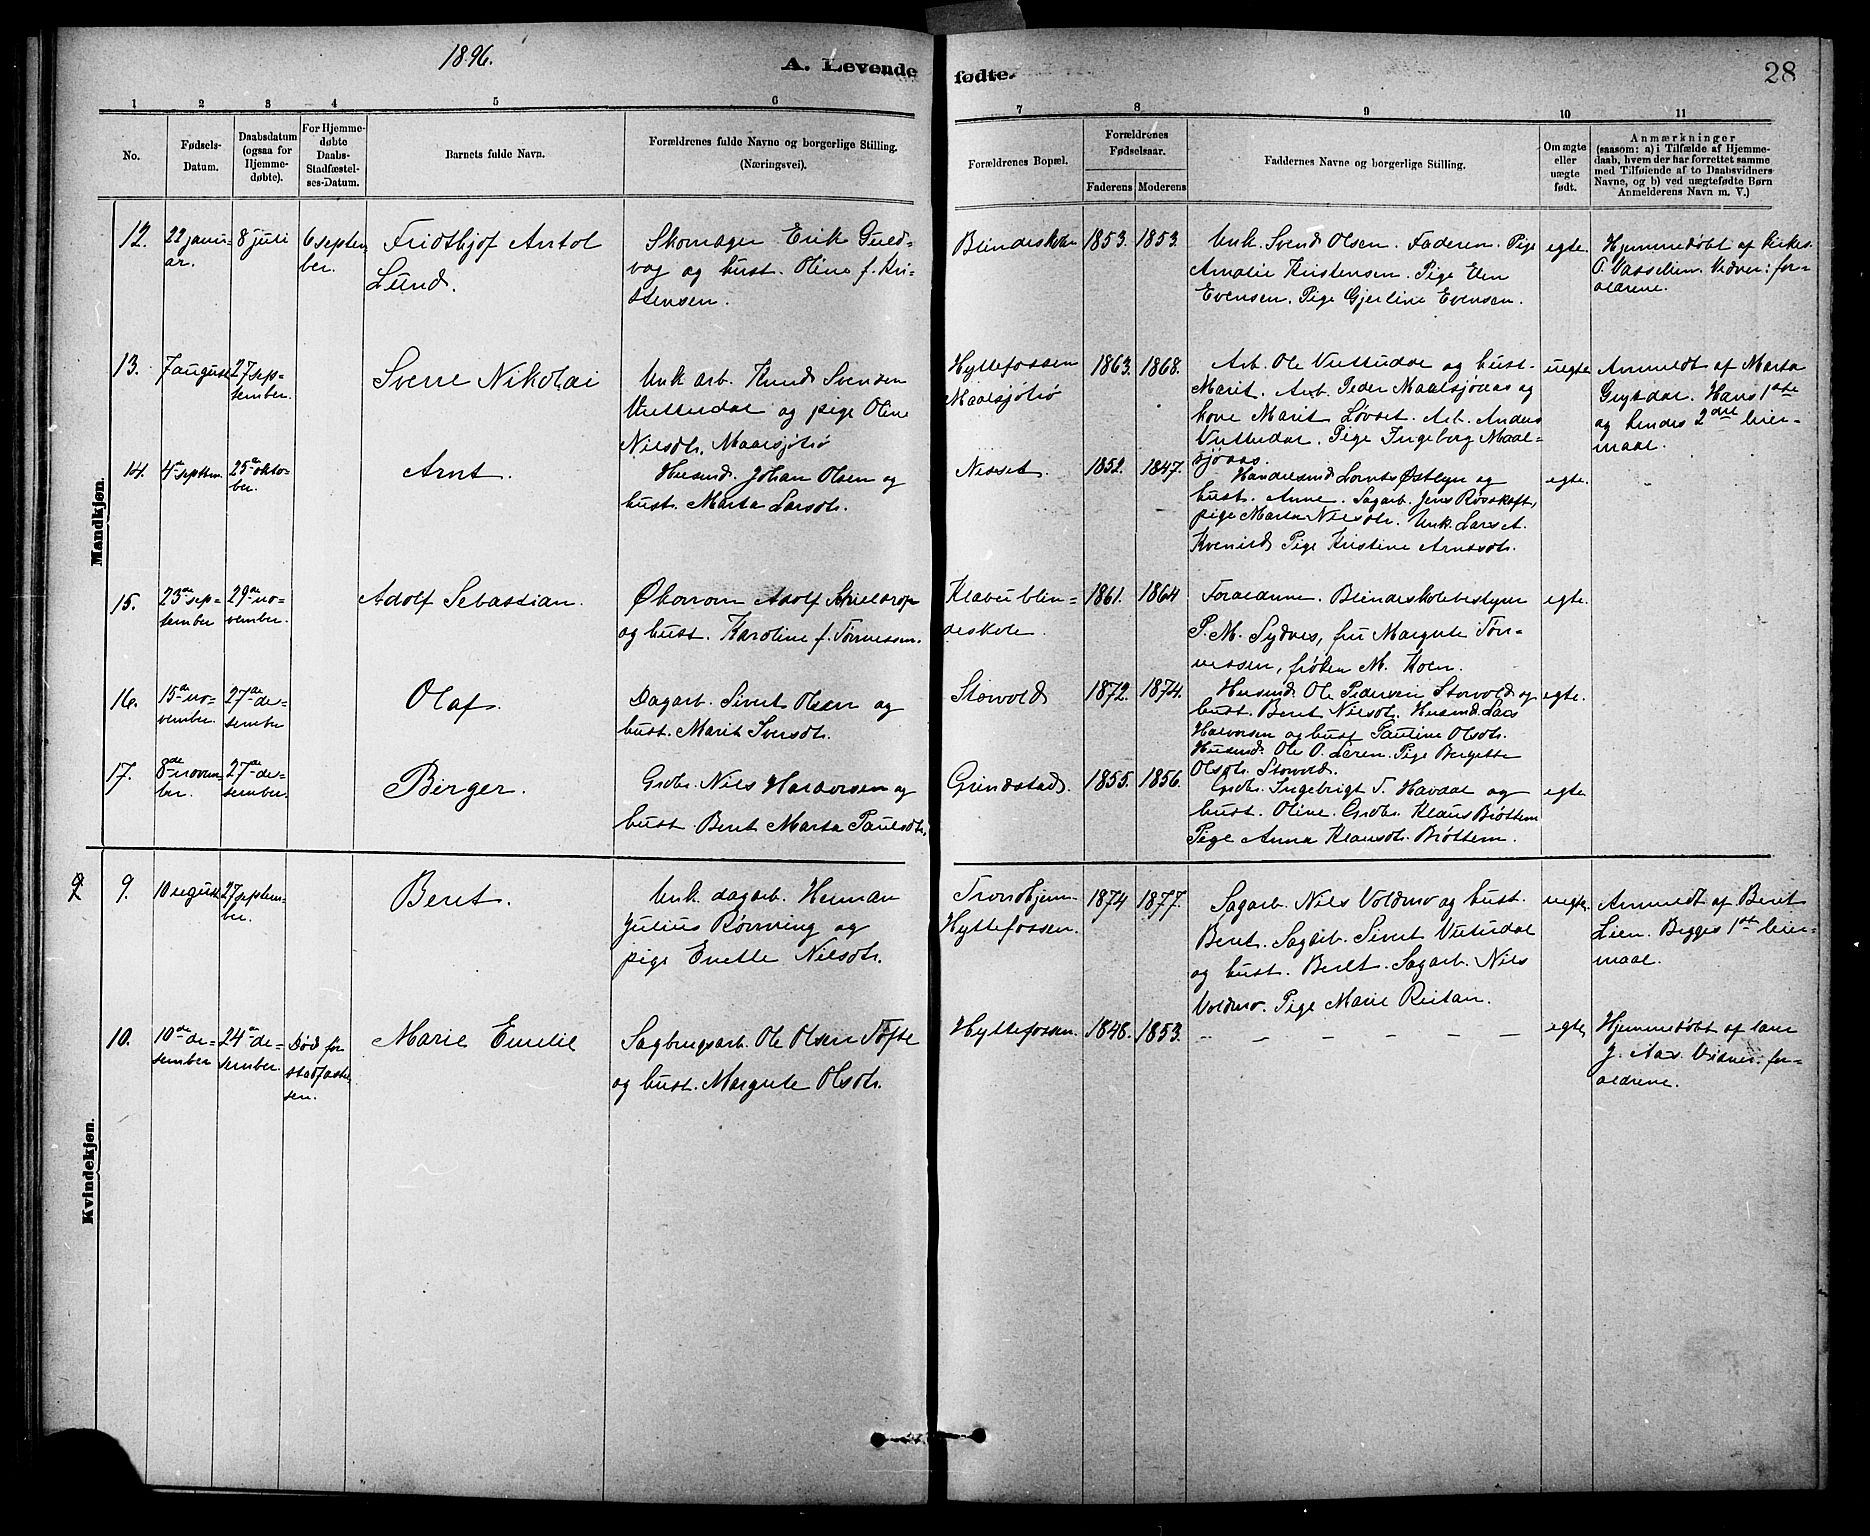 1896.
A. Levende
fødte.
28
1
2
3
4
5
6
7
8
9
10
11
No.
Fødsels-
Datum.
Daabsdatum
(ogsaa for
Hjemme-
døbte).
For Hjemme-
døbte
Daabs-
Stadfæstel-
ses-Datum.
Barnets fulde Navn.
Forældrenes fulde Navne og borgerlige Stilling.
(Næringsvei).
Forældrenes Bopæl.
Forældrenes
Fødselsaar.
Faderens
Moderens
Faddernes Navne og borgerlige Stilling.
Om ægte
eller
uægte
født.
Anmærkninger
(saasom: a) i Tilfælde af Hjemme-
daab, hvem der har forrettet samme
med Tilføiende af to Daabsvidners
Navne, og b) ved uægtefødte Børn
Anmelderens Navn m. V.)
Mandkjøn.
12.
22 janu-
ar.
8 juli
6 septem
ber.
Fridthjof Antol
Lund.
Skomager Erik Guld-
vog og hust. Oline f. Kri-
stensen.
Blindeskole
1853.
1853.
Unk. Svend Olsen. Faderen. Pige
Amalie Kristensen. Pige Elen
Evensen. Pige Gjerline Evensen.
egte.
Hjemmedøbt af kirkes.
O. Vasselien. Vidner: for-
ældrene.
13.
7 august
27 sep-
tember.
Sverre Nikolai
Unk arb. Knud Svensen
Vutudal og pige Oline
Nilsdtr. Maalsjøtrø
Hyttefossen
Maalsjøtrø
1863.
1868.
Arb. Ole Vuttudal og hust.
Marit. Arb. Peder Maalsjøaas og
kone Marit Løvset. Arb. Anders
Vuttudal. Pige Ingeborg Maal-
sjøaas.
uegte
Anmeldt af Marta
Grytdal. Hans 1ste
og hendes 2det leier-
maal.
14.
4de septem.
25de okto-
ber.
Arnt.
Husmd. Johan Olsen og
hust. Marta Larsdtr.
Nisset.
1852.
1847.
Handelsmd. Lornts Østbyn og
hust. Anne. Sagarb. Jens Røskaft,
pige Marta Nilsdtr. Unk. Lars A.
Kvenild. Pige Kristine Arntsdtr.
egte.
15.
23de sep-
tember
29de no-
vember.
Adolf Sebastian.
Økonom Adolf Skieldrop
og hust. Karoline f. Tønnessen.
Klæbu blin-
deskole.
1861.
1864
Forældrene. Blindeskolebestyrer
P. M. Sydnes, fru Margrete Tøn-
nessen, frøken M. Koen.
egte.
16.
15de no-
vember.
27de de-
sember
Olaf.
Dagarb. Sivert Olsen og
hust. Marit Iversdtr.
Storvold
1872.
1874.
Husmd. Ole Pedersen Storvold og
hust. Beret Nilsdtr. Husmd. Lars
Halvorsen og hust Pauline Olsdtr.
Husmd. Ole O. Leren. Pige Bergitte
Olsdtr. Storvold.
egte.
17.
8de novem-
ber.
27de de-
sember.
Birger.
Grdbr. Nils Haldorsen og
hust. Beret Marta Paulsdtr.
Grindstad.
1855.
1856.
Grdbr. Ingebrigt T. Havdal og
hust. Oline. Grdbr. Klaus Brøttem
Pige Anna Klausdtr. Brøttem.
egte
Kvindekjøn.
9.
10 august
27 septem-
ber.
Beret.
Unk. dagarb. Herman
Julius Rønning og
pige Enette Nilsdtr.
Trondhjem.
Hyttefossen.
1874
1877.
Sagarb. Nils Voldmo og hust.
Beret. Sagarb. Sivert Vutudal
og hust. Beret. Sagarb. Nils
Voldmo. Pige Marie Reitan.
uegte.
Anmeldt af Beret
Lien. Begges 1ste leier-
maal.
10.
10de de-
sember
24de de-
sember.
Død før
stadfæstel-
sen.
Marie Emilie
Sagbrugsarb. Ole Olsen Tøfte
og hust. Margrete Olsdtr.
Hyttefossen.
1848.
1853.
– – – – – –
egte
Hjemmedøbt af lærer
J. Aas. Vidner: for-
ældrene.